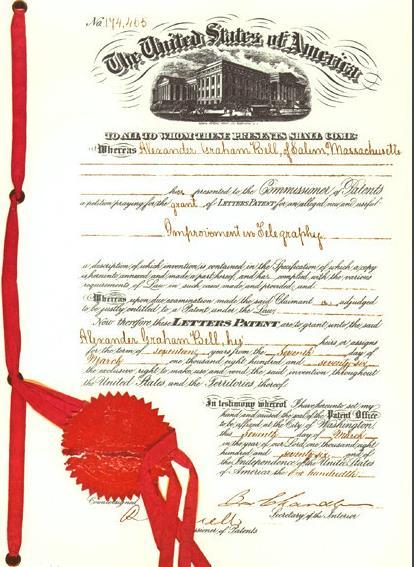 No. 174,465
The United States of America
TO ALL TO WHOM THESE PRESENTS SHALL COME:
Whereas Alexander Graham Bell, of Salem, Massachusetts
has presented to the Commissioner of Patents
a petition praying for the grant of LETTERS PATENT for an alleged new and useful
Improvement in Telegraphy,
a description of which invention is contained in the Specification of which a copy
is hereunto annexed and made a part hereof, and has complied with the various
requirements of Law in such cases made and provided, and
Whereas upon due examination made the said Claimant is adjudged
to be justly entitled to a Patent under the Law.
Now therefore these LETTERS PATENT are to grant unto the said
Alexander Graham Bell, his heirs or assigns
for the term of seventeen years from the Seventh day of
March one thousand eight hundred and seventy six
the exclusive right to make, use and vend the said invention throughout
the United States and the Territories thereof.
In testimony whereof I have hereunto set my
hand and caused the seal of the Patent Office
to be affixed at the City of Washington
this Seventh day of March
in the year of our Lord one thousand eight
hundred and seventy six and of
the Independence of the United States
of America the One hundredth.
Countersigned
Secretary of the Interior
of Patents